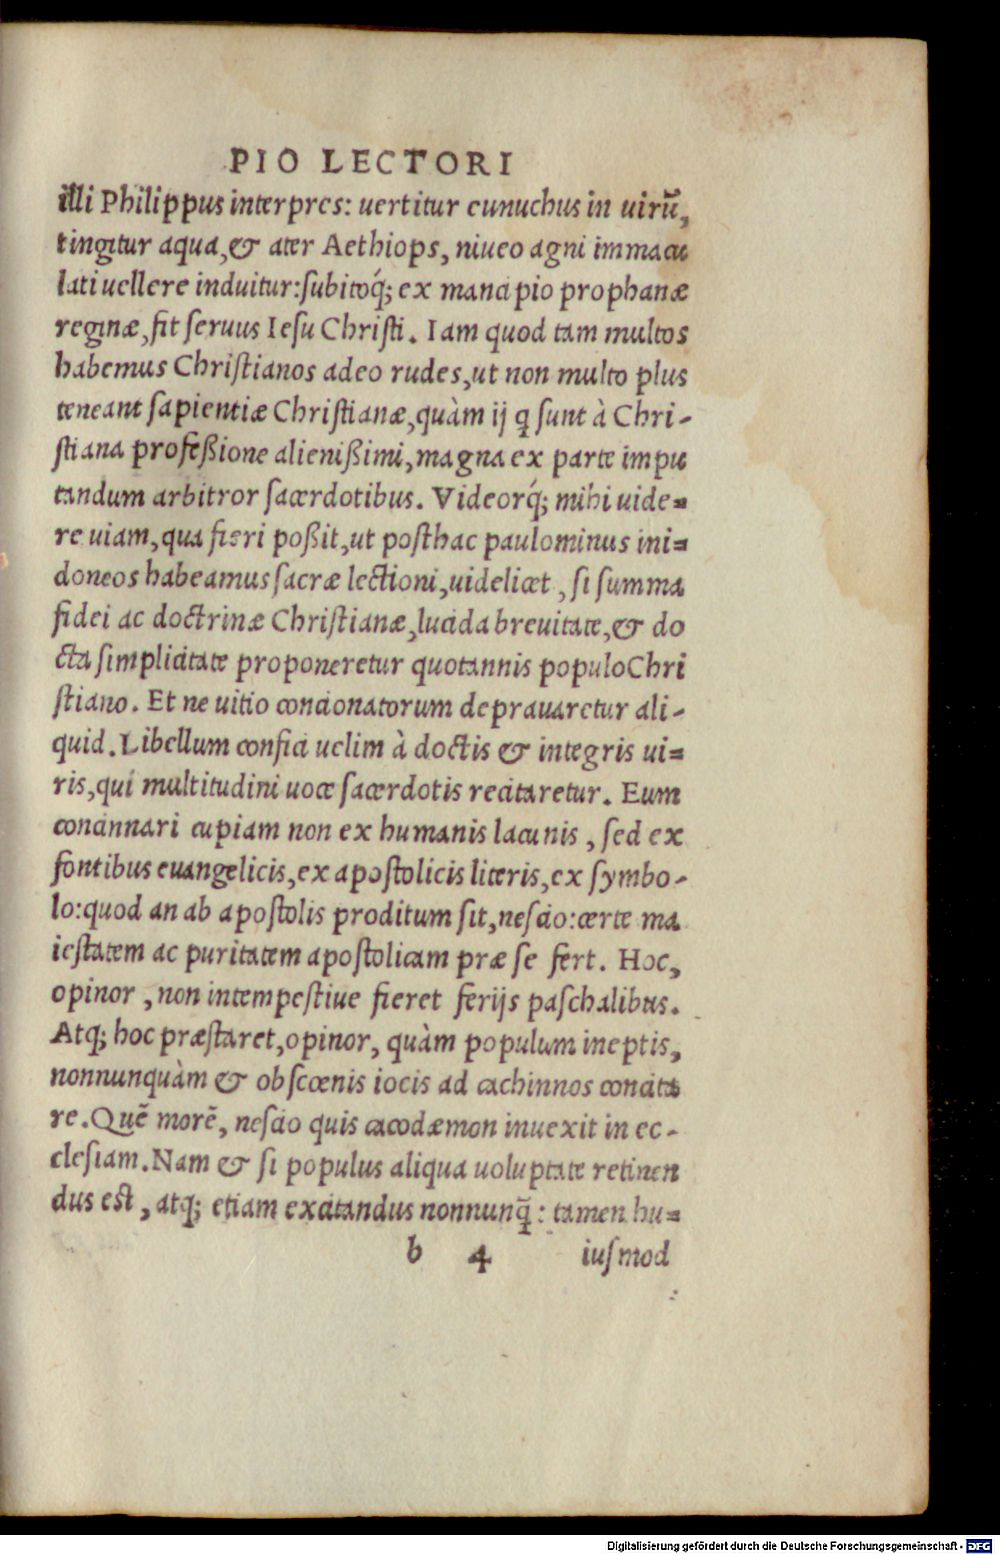 PIO LECTORI
illi Philippus interpres: uertitur eunuchus in uirũ,
tingitur aqua, & ater Aethiops, niueo agni immacu
lati uellere induitur: subitoq́; ex mancipio prophanæ
reginæ, fit seruus Iesu Christi. Iam quod tam multos
habemus Christianos adeo rudes, ut non multo plus
teneant sapientiæ Christianæ, quàm ij q̨ sunt à Chri-
stiana profeßione alienißimi, magna ex parte impu
tandum arbitror sacerdotibus. Videorq́; mihi uide=
re uiam, qua fieri poßit, ut posthac paulominus ini=
doneos habeamus sacræ lectioni, uidelicet, si summa
fidei ac doctrinæ Christianæ, lucida breuitate, & do
cta simplicitate proponeretur quotannis populo Chri
stiano. Et ne uitio concionatorum deprauaretur ali-
quid. Libellum confici uelim à doctis & integris ui=
ris, qui multitudini uoce sacerdotis recitaretur. Eum
concinnari cupiam non ex humanis lacunis, sed ex
fontibus euangelicis, ex apostolicis literis, ex symbo-
lo: quod an ab apostolis proditum sit, nescio: certe ma
iestatem ac puritatem apostolicam præ se fert. Hoc,
opinor, non intempestiue fieret ferijs paschalibus.
Atq; hoc præstaret, opinor, quàm populum ineptis,
nonnunquàm & obscœnis iocis ad cachinnos concita
re. Quẽ morẽ, nescio quis cacodæmon inuexit in ec-
clesiam. Nam & si populus aliqua uoluptate retinen
dus est, atq; etiam excitandus nonnunq̃: tamen hu=
b 4 iusmod
Digitalisierung gefördert durch die Deutsche Forschungsgemeinschaft - DFG